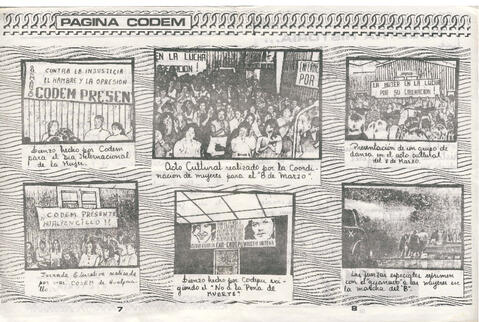 PAGINA CODEM
8 MARZO
CONTRA LA INJUSTICIA
EL HAMBRE Y LA OPRESION
CODEM PRESEN
Lienzo hecho por Codem
para el Dia Internacional
de la Mujer.
EN LA LUCHA
LIBERACION!
POR
Acto Cultural realizado por la Coordi-
nacion de mujeres para el "8 de Marzo".
LA MUJER EN LA LUCHA
POR SU LIBERACION!
Presentación de un grupo de
danza en el acto cultural
del 8 de Marzo.
CODEM PRESENTE
HUALPENCILLO!!
Jornada Educativa realizada
por CODEM de Hualpen-
cillo.
Lienzo hecho por Codepu exi-
giendo el "No a la Pena de
MUERTE".
Las fuerzas especiales reprimen
con el guanaco a las mujeres en
la marcha del "8".
7
8